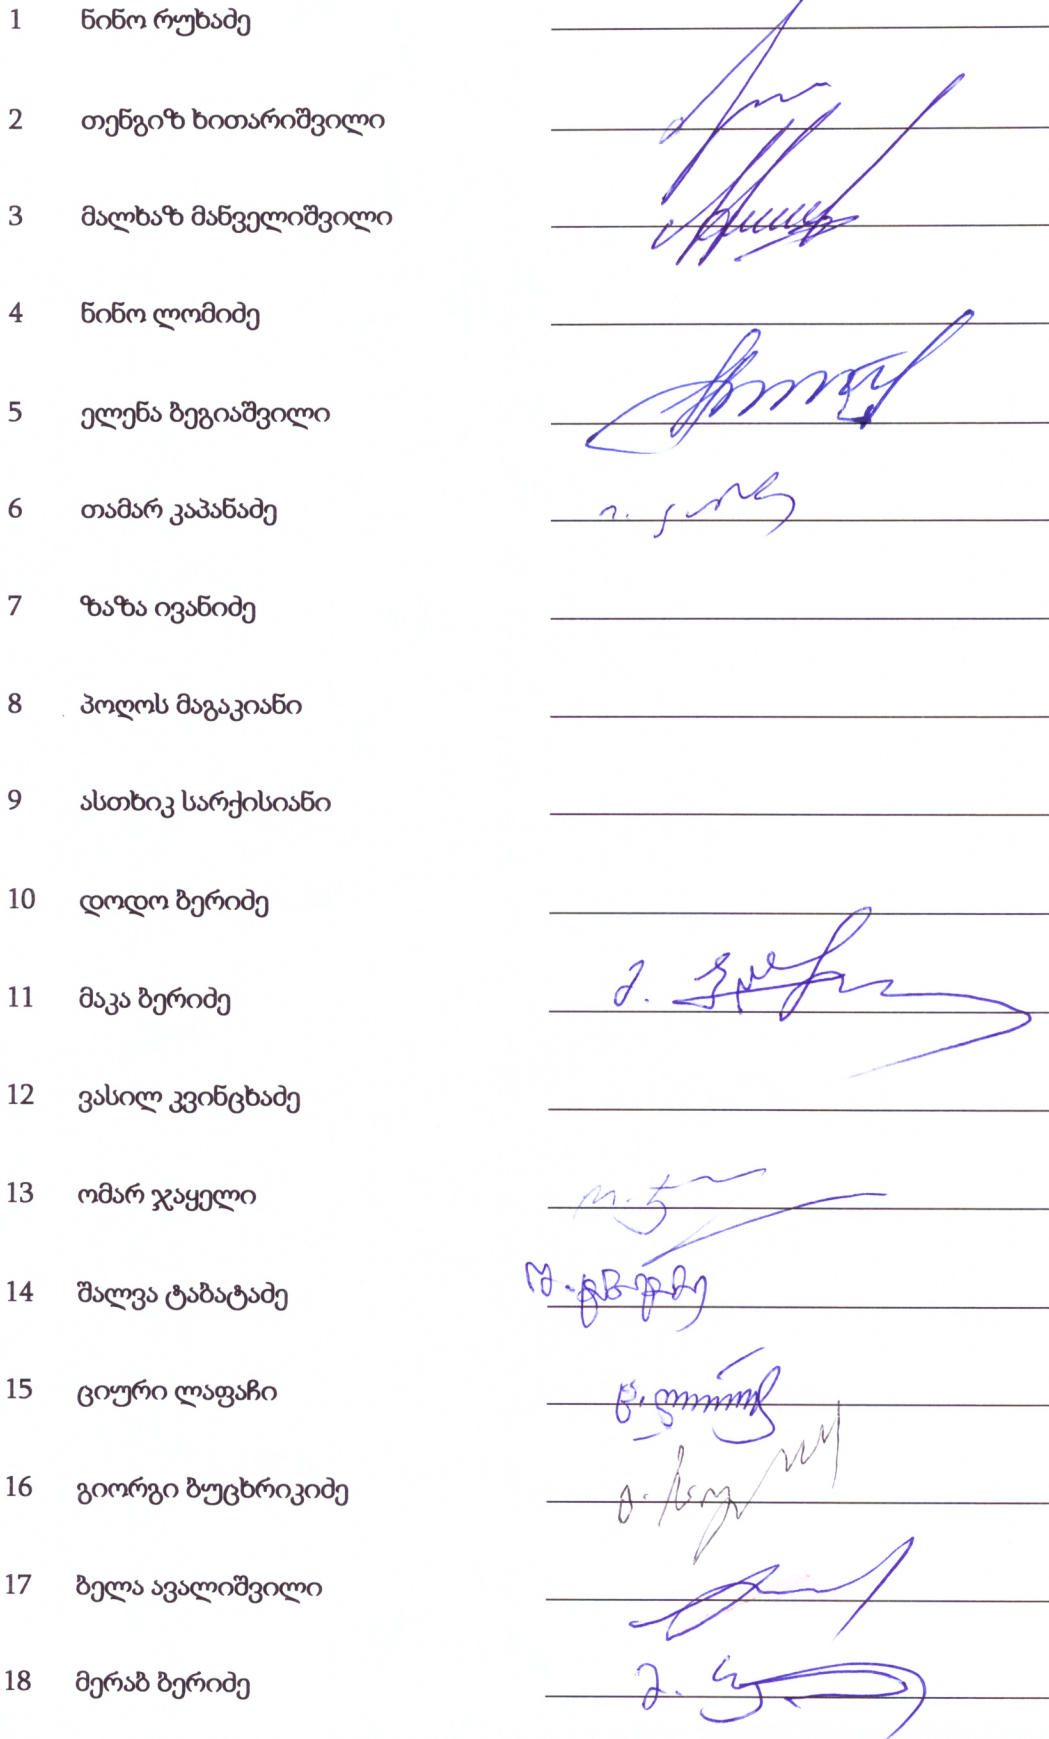 1 ნინო რუხაძე
2 თენგიზ ხითარიშვილი
3 მალხაზ მანველიშვილი
4 ნინო ლომიძე
5 ელენა ბეგიაშვილი
6 თამარ კაპანაძე
7 ზაზა ივანიძე
8 პოღოს მაგაკიანი
9 ასთხიკ სარქისიანი
10 დოდო ბერიძე
11 მაკა ბერიძე
12 ვასილ კვინცხაძე
13 ომარ ჯაყელი
14 შალვა ტაბატაძე
15 ციური ლაფაჩი
16 გიორგი ბუცხრიკიძე
17 ბელა ავალიშვილი
18 მერაბ ბერიძე